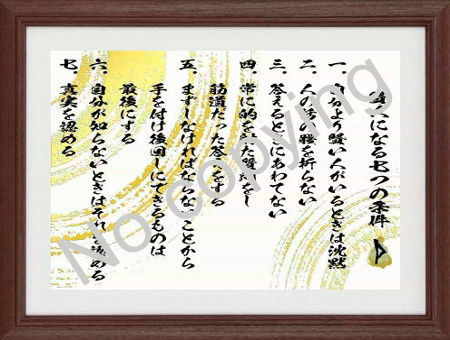 賢人になる七つの条件
一、自分より賢い人がいるときは沈黙
二、人の話の腰を折らない
三、答えるときにあわてない
四、常に的を射た質問をし
筋道だった答えをする
五、まずしなければならないことから
手を付け後回しにできるものは
最後にする
六、自分が知らないときはそれを認める
七、真実を認める
No copying